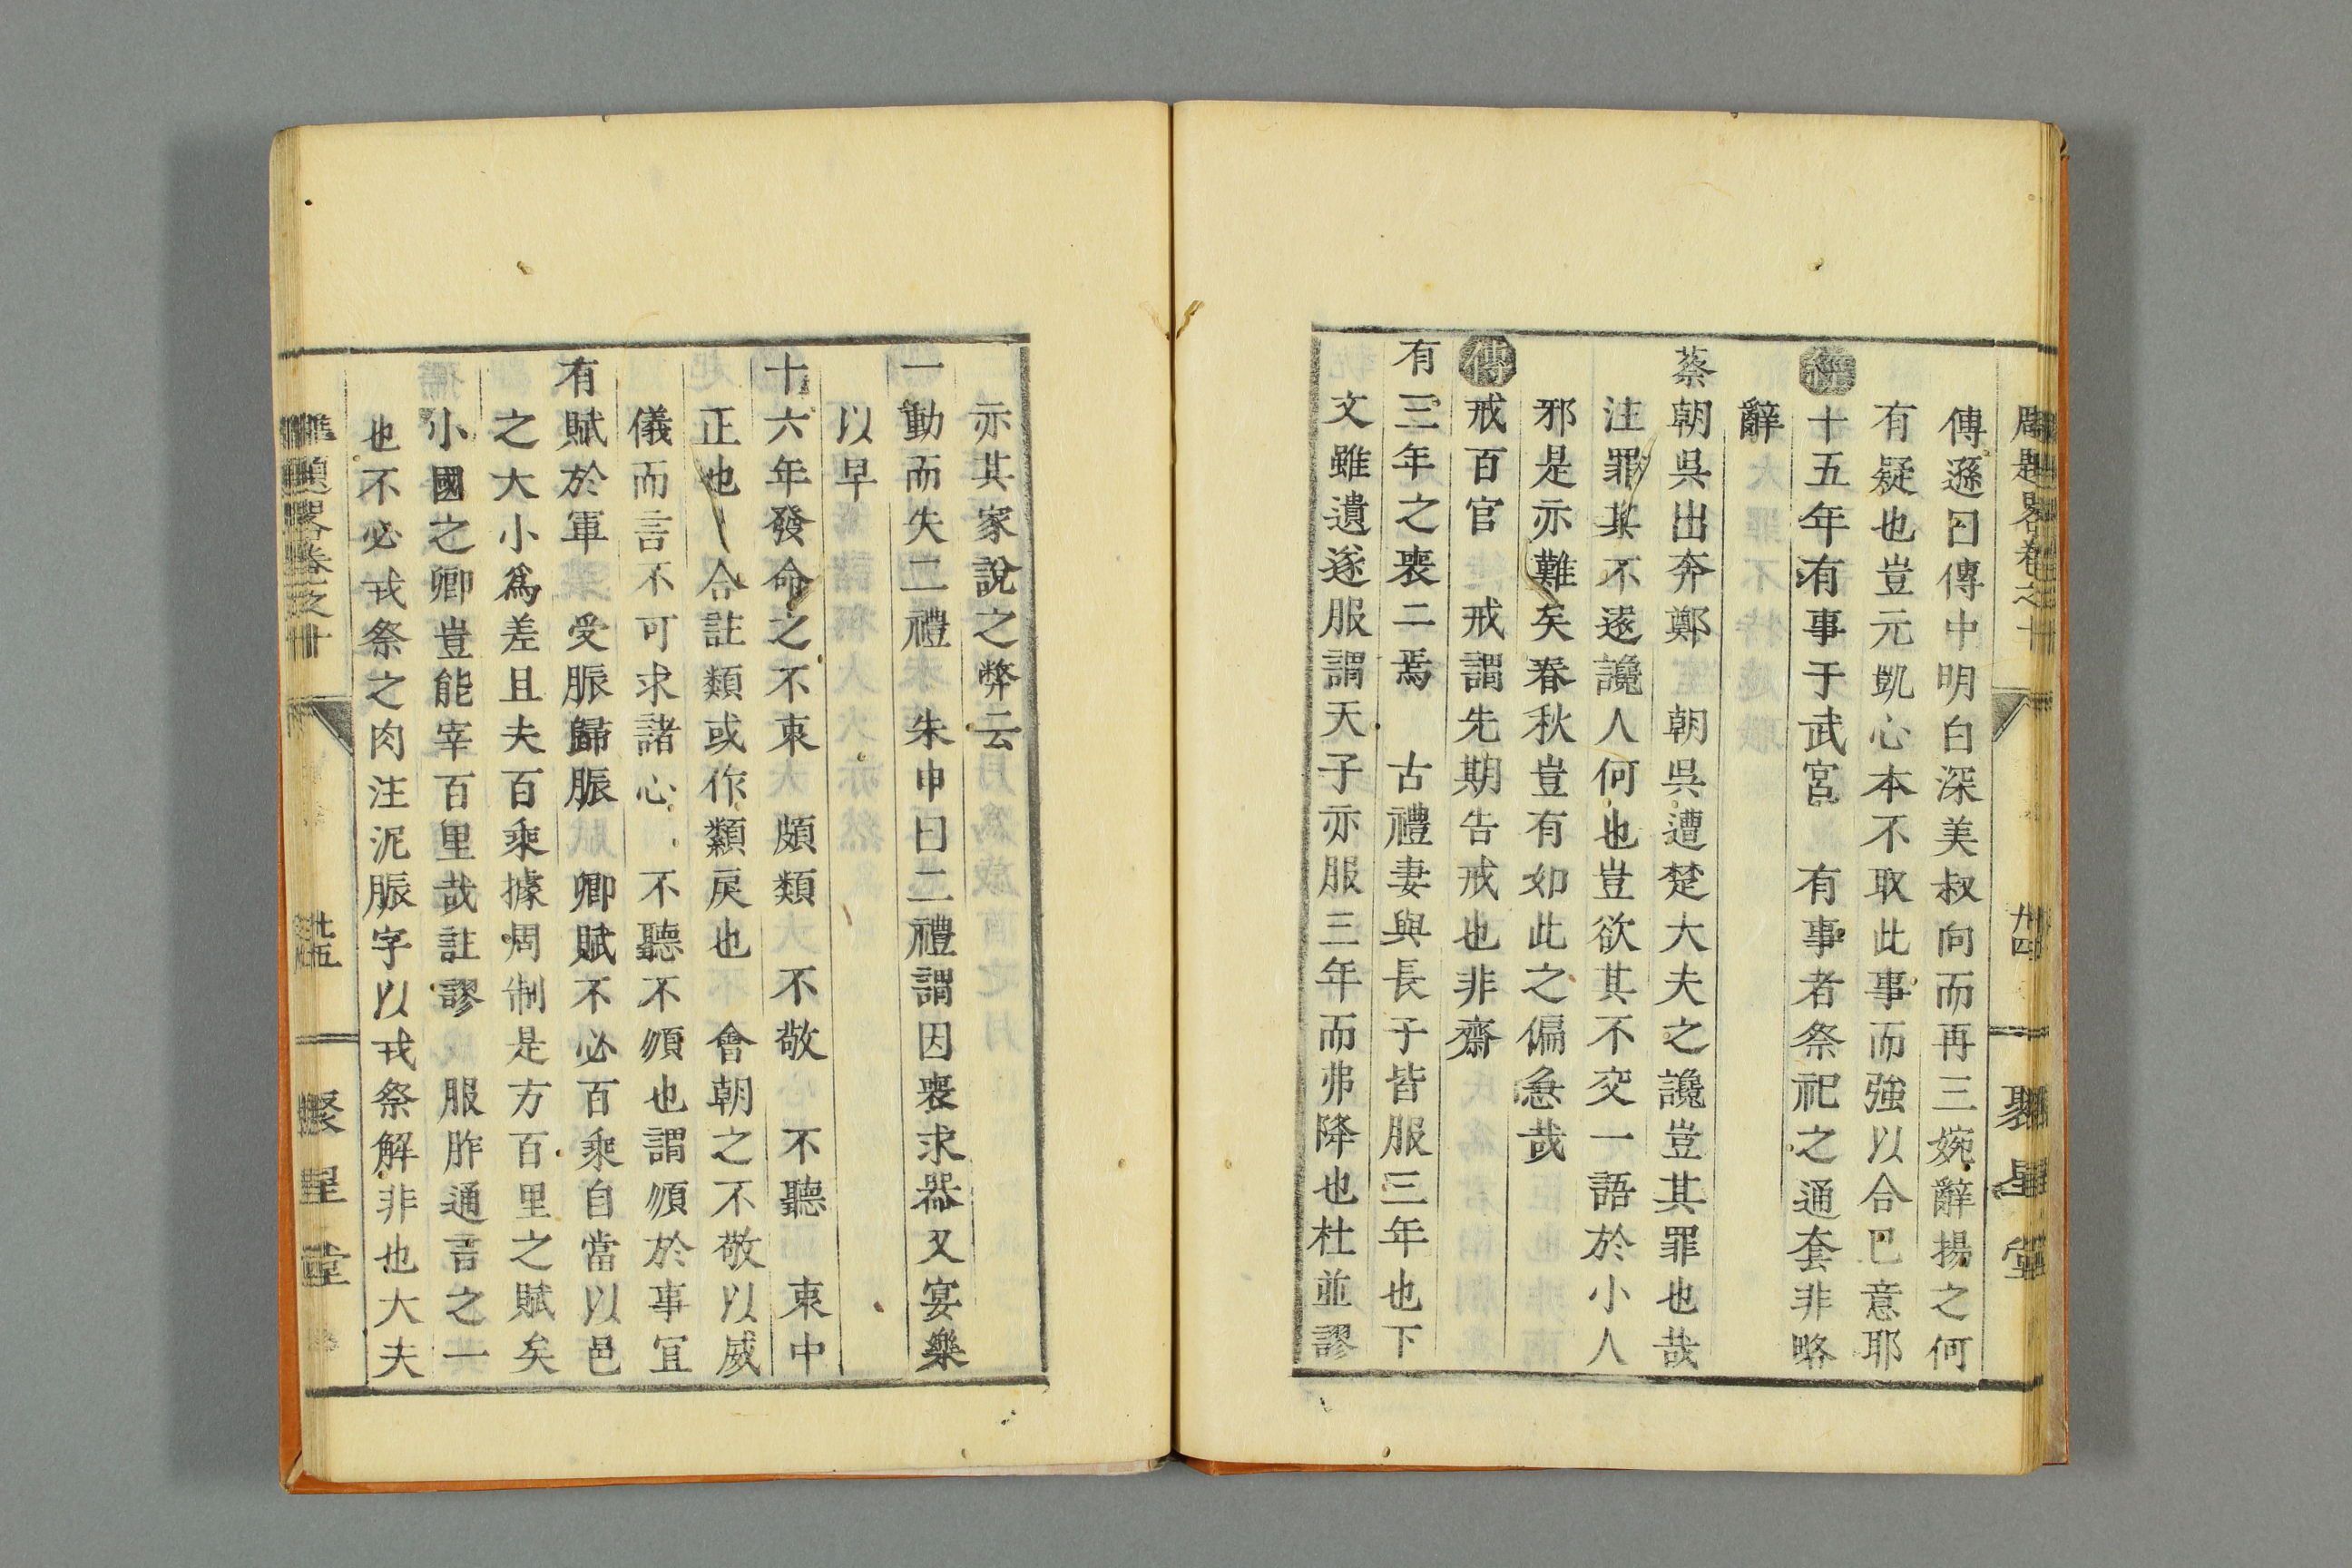 傳遜曰傳中明白深美叔向而再三婉辭揚之何
有疑也豈元凱心本不取此事而強以合己意耶
經十五年有事于武宮　有事者祭祀之通套非略
辭
蔡朝吳出奔鄭　朝吳遭楚大夫之讒豈其罪也哉
注罪其不遠讒人何也豈欲其不交一語於小人
邪是亦難矣春秋豈有如此之偏急哉
傳戒百官　戒謂先期告戒也非齋
有三年之喪二焉　古禮妻與長子皆服三年也下
文雖遺遂服謂天子亦服三年而弗降也杜並謬
卷之
廿四
聚星堂
亦其家說之弊云
一動而失二禮　朱申曰二禮謂因喪求器又宴樂
以早
十六年發命之不衷　頗類　不敬　不聽　衷中
正也　合註類或作纇戾也　會朝之不敬以威
儀而言不可求諸心　不聽不順也謂順於事宜
有賦於軍　受脤歸脤　卿賦不必百乘自當以邑
之大小爲差且夫百乘據周制是方百里之賦矣
小國之卿豈能宰百里哉註謬　服胙通言之一
也不必戎祭之肉注泥脤字以戎祭解非也大夫
廿五
聚星堂